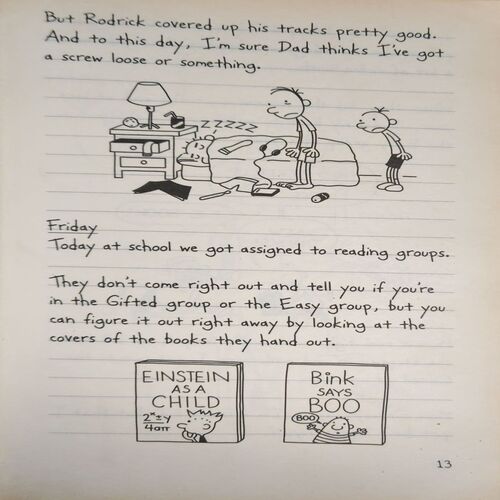 But Rodrick covered up his tracks pretty good.
And to this day, I'm sure Dad thinks I've got
a screw loose or something.
ZZZZZ
Friday
Today at school we got assigned to reading groups.
They don't come right out and tell you if you're
in the Gifted group or the Easy group, but you
can figure it out right away by looking at the
covers of the books they hand out.
EINSTEIN
AS A
CHILD
Bink
SAYS
BOO
BOO
13